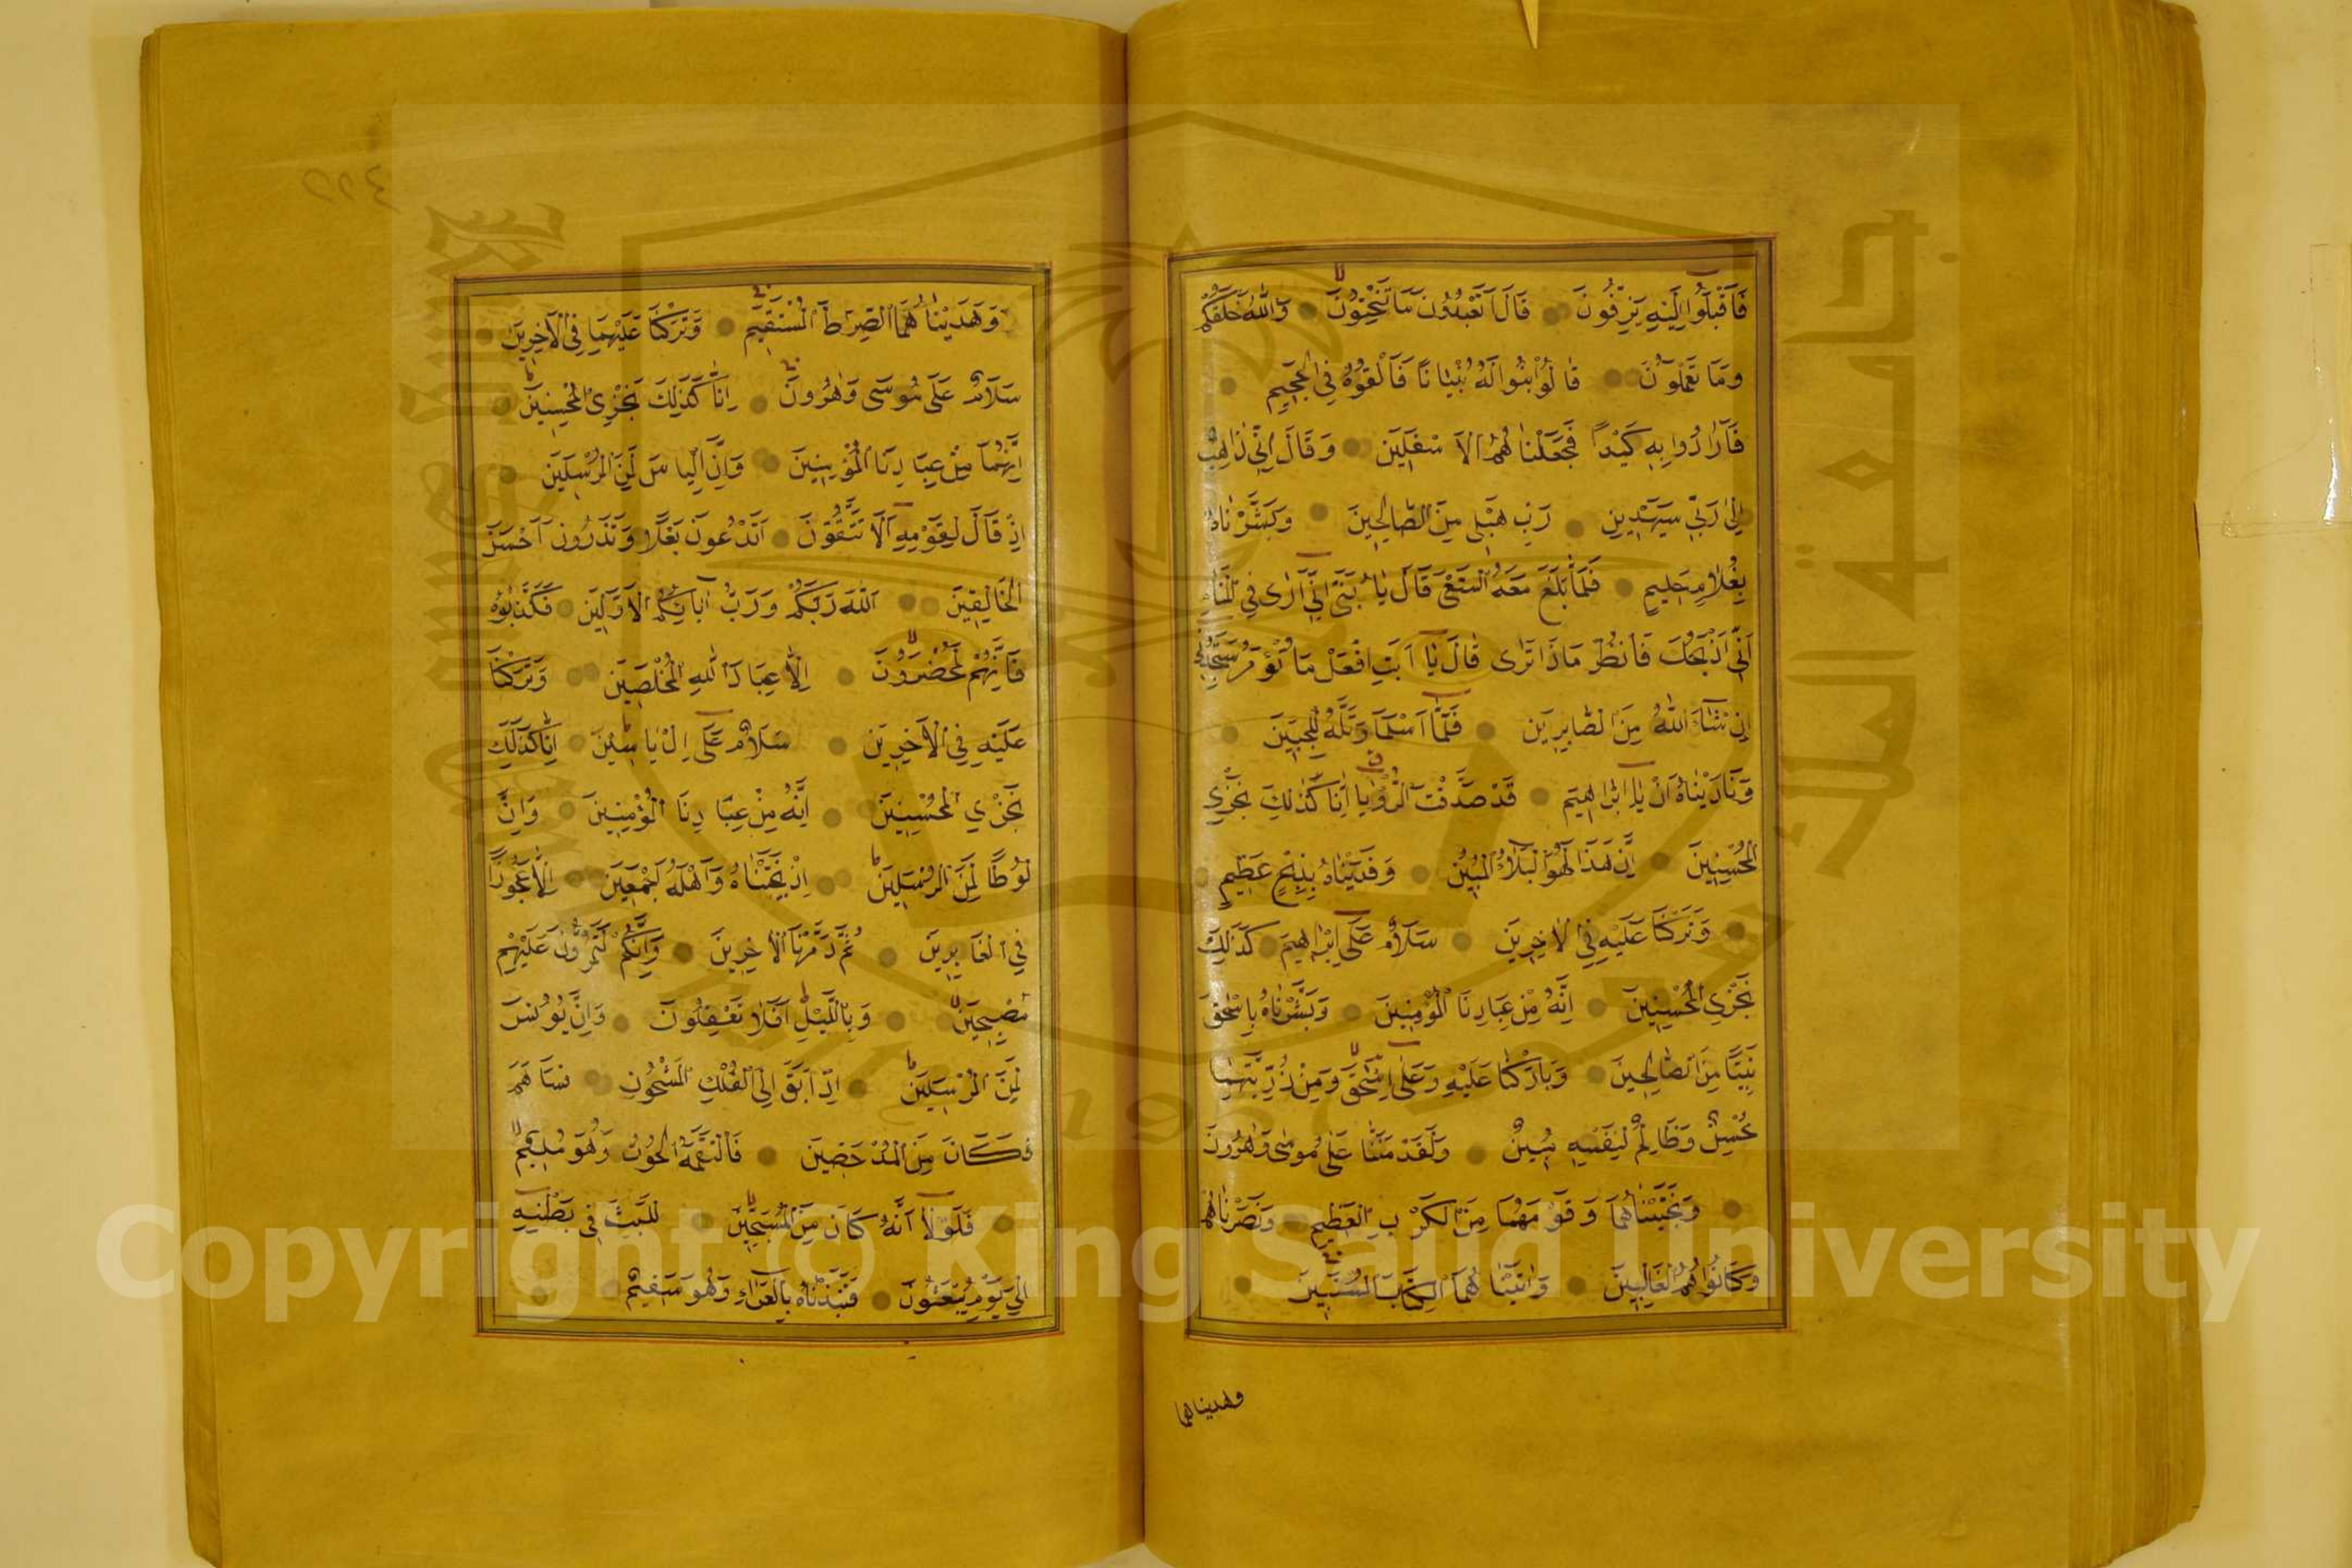 فَاَقْبَلُوا اِلَيْهِ يَزِفُّونَ قَالَ اَتَعْبُدُونَ مَا تَنْحِتُونَ وَاللّٰهُ خَلَقَكُمْ
وَمَا تَعْمَلُونَ قَالُوا ابْنُوا لَهُ بُنْيَانًا فَاَلْقُوهُ فِي الْجَحِيمِ
فَاَرَادُوا بِهِ كَيْدًا فَجَعَلْنَاهُمُ الْاَسْفَلِينَ وَقَالَ اِنِّي ذَاهِبٌ
اِلٰى رَبِّي سَيَهْدِينِ رَبِّ هَبْ لِي مِنَ الصَّالِحِينَ وَبَشَّرْنَاهُ
بِغُلَامٍ حَلِيمٍ فَلَمَّا بَلَغَ مَعَهُ السَّعْيَ قَالَ يَا بُنَيَّ اِنِّي اَرٰى فِي الْمَنَامِ
اَنِّي اَذْبَحُكَ فَانْظُرْ مَاذَا تَرٰى قَالَ يَا اَبَتِ افْعَلْ مَا تُؤْمَرُ سَتَجِدُنِي
اِنْ شَاءَ اللّٰهُ مِنَ الصَّابِرِينَ فَلَمَّا اَسْلَمَا وَتَلَّهُ لِلْجَبِينِ
وَنَادَيْنَاهُ اَنْ يَا اِبْرٰهِيمُ قَدْ صَدَّقْتَ الرُّؤْيَا اِنَّا كَذٰلِكَ نَجْزِي
الْمُحْسِنِينَ اِنَّ هٰذَا لَهُوَ الْبَلَاءُ الْمُبِينُ وَفَدَيْنَاهُ بِذِبْحٍ عَظِيمٍ
وَتَرَكْنَا عَلَيْهِ فِي الْاٰخِرِينَ سَلَامٌ عَلٰى اِبْرٰهِيمَ كَذٰلِكَ
نَجْزِي الْمُحْسِنِينَ اِنَّهُ مِنْ عِبَادِنَا الْمُؤْمِنِينَ وَبَشَّرْنَاهُ بِاِسْحٰقَ
نَبِيًّا مِنَ الصَّالِحِينَ وَبَارَكْنَا عَلَيْهِ وَعَلٰى اِسْحٰقَ وَمِنْ ذُرِّيَّتِهِمَا
مُحْسِنٌ وَظَالِمٌ لِنَفْسِهِ مُبِينٌ وَلَقَدْ مَنَنَّا عَلٰى مُوسٰى وَهٰرُونَ
وَنَجَّيْنَاهُمَا وَقَوْمَهُمَا مِنَ الْكَرْبِ الْعَظِيمِ وَنَصَرْنَاهُمْ
فَكَانُوا هُمُ الْغَالِبِينَ وَاٰتَيْنَاهُمَا الْكِتَابَ الْمُسْتَبِينَ
وهديناهما
٤٢٢
وَهَدَيْنَاهُمَا الصِّرَاطَ الْمُسْتَقِيمَ وَتَرَكْنَا عَلَيْهِمَا فِي الْاٰخِرِينَ
سَلَامٌ عَلٰى مُوسٰى وَهٰرُونَ اِنَّا كَذٰلِكَ نَجْزِي الْمُحْسِنِينَ
اِنَّهُمَا مِنْ عِبَادِنَا الْمُؤْمِنِينَ وَاِنَّ اِلْيَاسَ لَمِنَ الْمُرْسَلِينَ
اِذْ قَالَ لِقَوْمِهِ اَلَا تَتَّقُونَ اَتَدْعُونَ بَعْلًا وَتَذَرُونَ اَحْسَنَ
الْخَالِقِينَ اللّٰهَ رَبَّكُمْ وَرَبَّ اٰبَائِكُمُ الْاَوَّلِينَ فَكَذَّبُوهُ
فَاِنَّهُمْ لَمُحْضَرُونَ اِلَّا عِبَادَ اللّٰهِ الْمُخْلَصِينَ وَتَرَكْنَا
عَلَيْهِ فِي الْاٰخِرِينَ سَلَامٌ عَلٰى اِلْ يَاسِينَ اِنَّا كَذٰلِكَ
نَجْزِي الْمُحْسِنِينَ اِنَّهُ مِنْ عِبَادِنَا الْمُؤْمِنِينَ وَاِنَّ
لُوطًا لَمِنَ الْمُرْسَلِينَ اِذْ نَجَّيْنَاهُ وَاَهْلَهُ اَجْمَعِينَ اِلَّا عَجُوزًا
فِي الْغَابِرِينَ ثُمَّ دَمَّرْنَا الْاٰخَرِينَ وَاِنَّكُمْ لَتَمُرُّونَ عَلَيْهِمْ
مُصْبِحِينَ وَبِاللَّيْلِ اَفَلَا تَعْقِلُونَ وَاِنَّ يُونُسَ
لَمِنَ الْمُرْسَلِينَ اِذْ اَبَقَ اِلَى الْفُلْكِ الْمَشْحُونِ فَسَاهَمَ
فَكَانَ مِنَ الْمُدْحَضِينَ فَالْتَقَمَهُ الْحُوتُ وَهُوَ مُلِيمٌ
فَلَوْلَا اَنَّهُ كَانَ مِنَ الْمُسَبِّحِينَ لَلَبِثَ فِي بَطْنِهِ
اِلٰى يَوْمِ يُبْعَثُونَ فَنَبَذْنَاهُ بِالْعَرَاءِ وَهُوَ سَقِيمٌ
جامعة الملك سعود
King Saud University
1957
Copyright © King Saud University